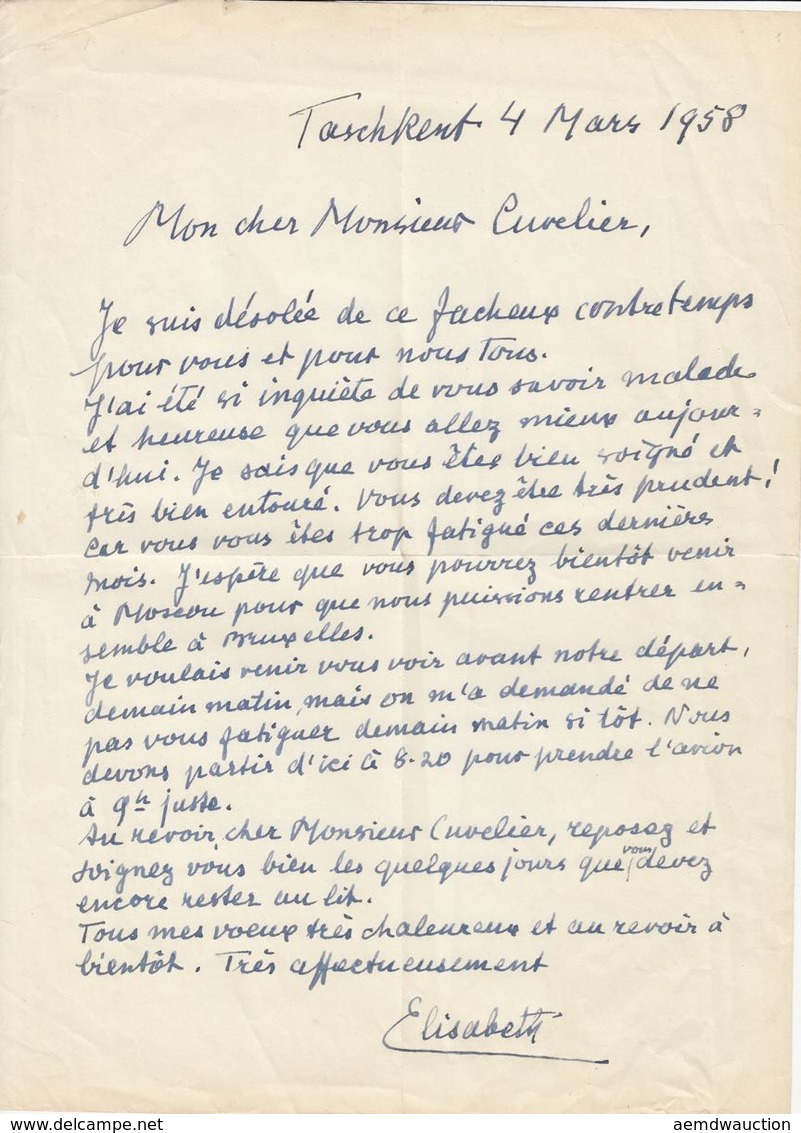 Taschkent 4 Mars 1958
Mon cher Monsieur Cuvelier,
Je suis désolée de ce facheux contretemps
pour vous et pour nous tous.
J'ai été si inquiète de vous savoir malade
et heureuse que vous allez mieux aujour=
d'hui. Je sais que vous êtes bien soigné et
très bien entouré. Vous devez être très prudent!
Car vous vous êtes trop fatigué ces dernières
mois. J'espère que vous pourrez bientôt venir
à Moscou pour que nous puissions rentrer en=
semble à Bruxelles.
Je voulais venir vous voir avant notre départ,
demain matin, mais on m'a demandé de ne
pas vous fatiguer demain matin si tôt. Nous
devons partir d'ici à 8.20 pour prendre l'avion
à 9h juste.
Au revoir, cher Monsieur Cuvelier, reposez et
soignez vous bien les quelques jours que vous devez
encore rester au lit.
Tous mes voeux très chaleureux et au revoir à
bientôt. Très affectueusement
Elisabeth
delcampe.net
aemdwauction